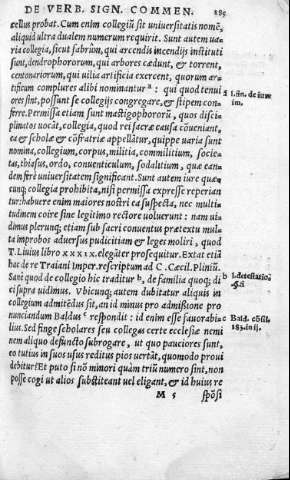 DE VERB. SIGN. COMMEN. 185
cellus probat. Cum enim collegiũ sit uniuersitatis nomẽ,
aliquid ultra dualem numerum requirit. Sunt autem ua-
ria collegia, sicut fabrũm, qui arcendis incendijs instituti
sunt, dendrophororum, qui arbores cædunt, & torrent,
centonariorum, qui uilia artificia exercent, quorum ar-
tificum complures alibi nominantur a : qui quod tenui
ores sint, possunt se collegijs congregare, & stipem con-
ferre. Permissa etiam sunt mactigophororũ, quos disci-
plinatos uocãt, collegia, quod rei sacræ causa cõueniant,
ea & scholæ & cõfratriæ appellãtur, quippe uaria sunt
nomina, collegium, corpus, militia, commilitium, socie-
tas, thiasus, ordo, conuenticulum, sodalitium, quæ ean-
dem ferè uniuersitatem significant. Sunt autem iure quæ-
cunq; collegia prohibita, nisi permissa expresse reperian
tur: habuere enim maiores nostri ea suspecta, nec multi-
tudinem coire sine legitimo rectore uoluerunt : nam ui-
dimus plerunq; etiam sub sacri conuentus prætextu mul-
ta improbos aduersus pudicitiam & leges moliri, quod
T. Liuius libro XXXIX. elegãter prosequitur. Extat etiã
hac de re Traiani Imper. rescriptum ad C. Cæcil. Pliniũ.
Sanè quod de collegio hic traditur b, de familia quoq; di
ci supra uidimus. Vbicunq; autem dubitatur aliquis in
collegium admittẽdus sit, an id minus pro admissione pro
nunciandum Baldus c respondit : id enim esse fauorabi-
lius. Sed finge scholares seu collegas certæ ecclesiæ nemi
nem aliquo defuncto subrogare, ut quo pauciores sunt,
eo tutius in suos usus reditus pios uertãt, quomodo proui
debitur? Et puto si nõ minori quàm triũ numero sint, non
posse cogi ut alios substituant uel eligant, & id huius re
M 5 spõsi
a l. fin. de iure
im.
b l. detestatio.
§. fi.
Bald. cõsil.
183. in ij.